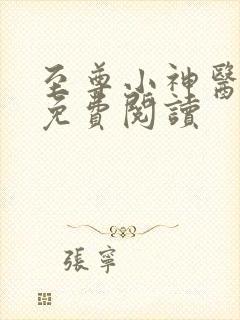 至尊小神醫
免費閱讀
張寧